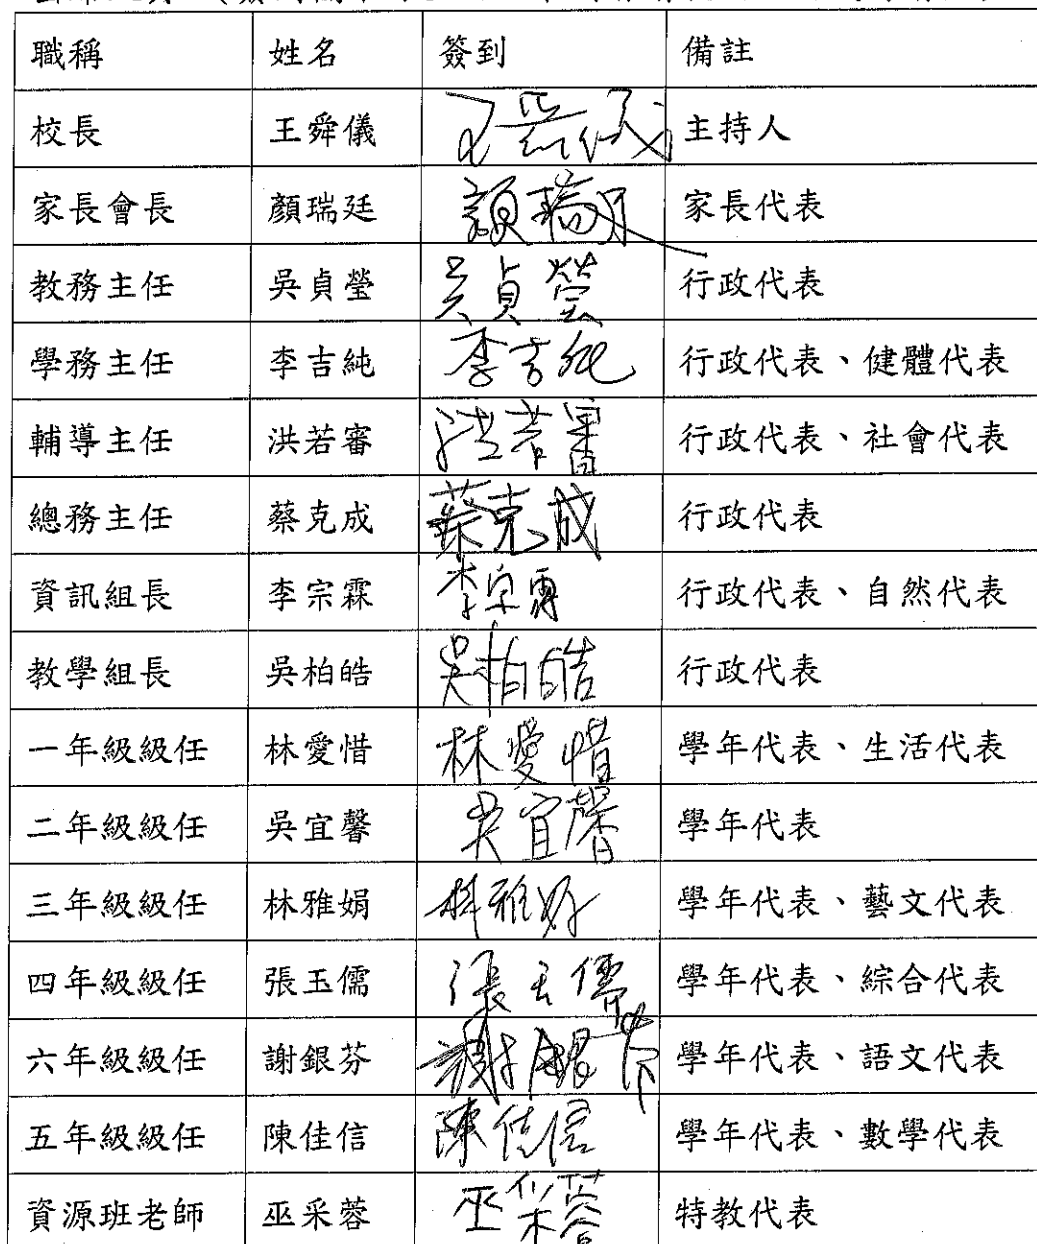 職稱 姓名 簽到 備註
校長 王舜儀 王舜儀 主持人
家長會長 顏瑞廷 顏瑞廷 家長代表
教務主任 吳貞瑩 吳貞瑩 行政代表
學務主任 李吉純 李吉純 行政代表、健體代表
輔導主任 洪若審 洪若審 行政代表、社會代表
總務主任 蔡克成 蔡克成 行政代表
資訊組長 李宗霖 李宗霖 行政代表、自然代表
教學組長 吳柏皓 吳柏皓 行政代表
一年級級任 林愛惜 林愛惜 學年代表、生活代表
二年級級任 吳宜馨 吳宜馨 學年代表
三年級級任 林雅娟 林雅娟 學年代表、藝文代表
四年級級任 張玉儒 張玉儒 學年代表、綜合代表
六年級級任 謝銀芬 謝銀芬 學年代表、語文代表
五年級級任 陳佳信 陳佳信 學年代表、數學代表
資源班老師 巫采蓉 巫采蓉 特教代表